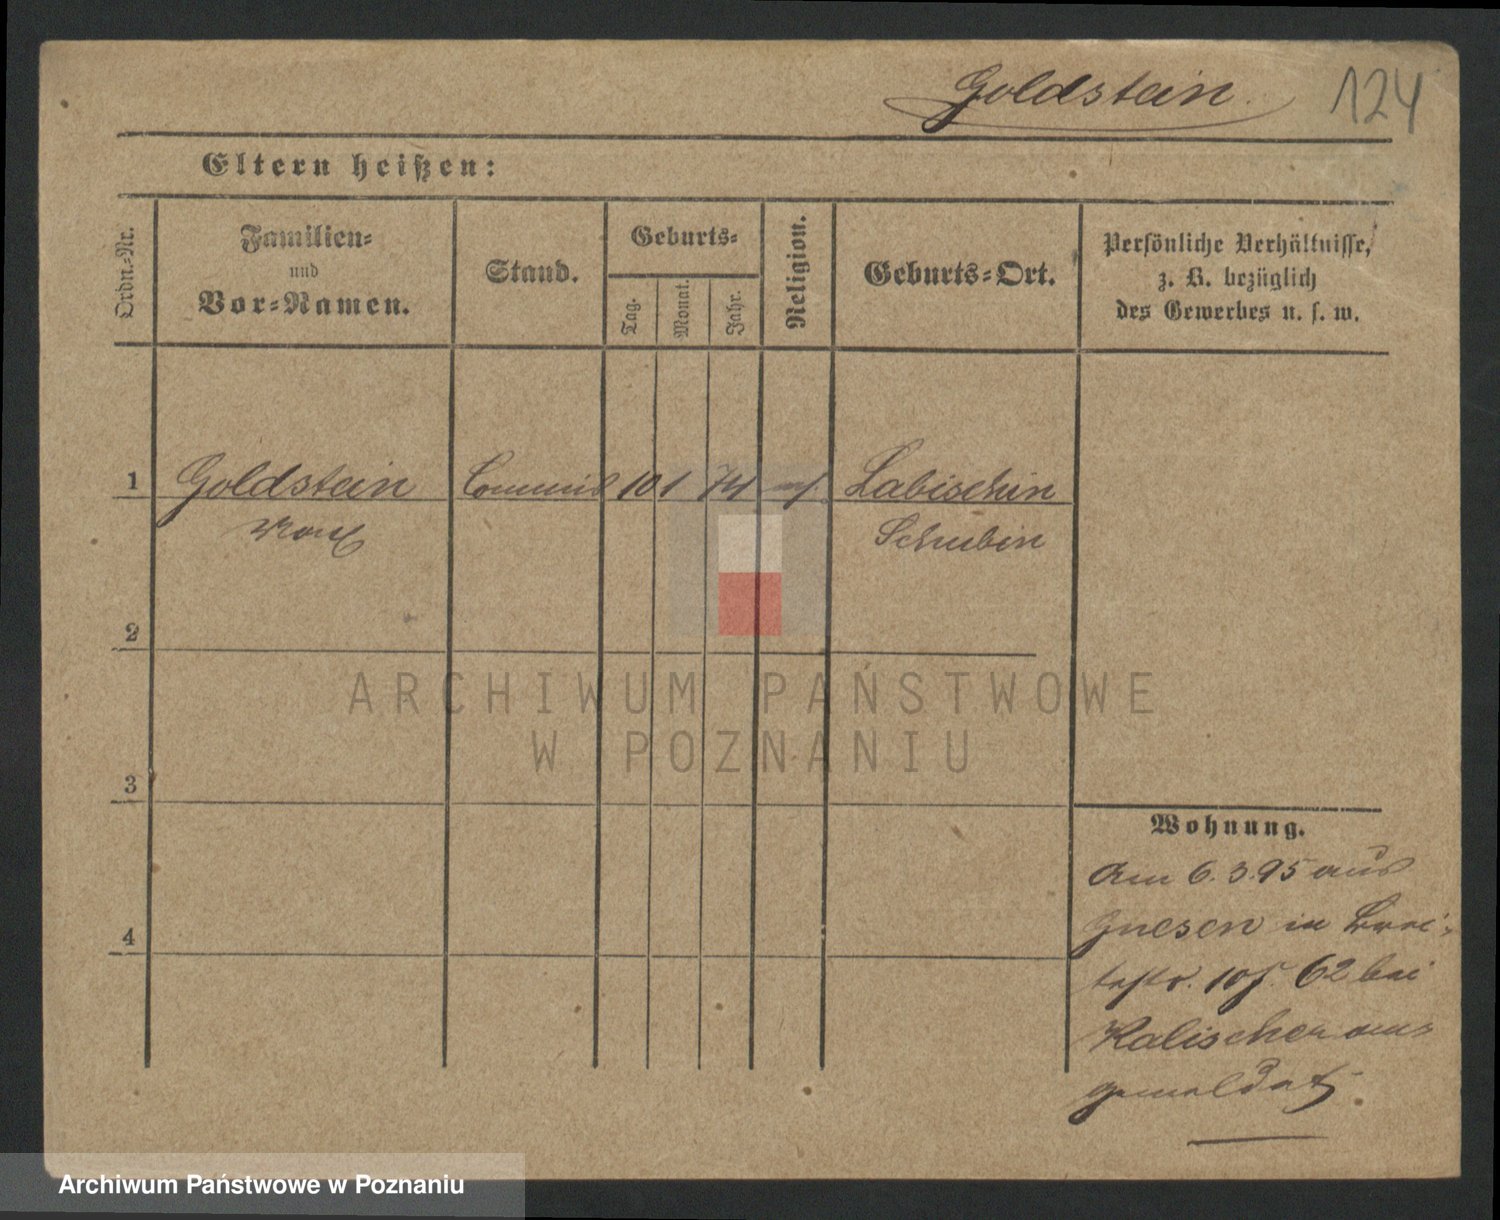 Goldstein.
124
Eltern heißen:
Ordn.-Nr.
Familien-
und
Vor-Namen.
Stand.
Geburts-
Tag.
Monat.
Jahr.
Religion.
Geburts-Ort.
Persönliche Verhältnisse,
z. B. bezüglich
des Gewerbes u. s. w.
1 Goldstein Commis 10 1 74 Labischin
Max Schubin
2
3
4
Wohnung.
Am 6.3.95 aus
Gnesen in Brei-
testr. 62 bei
Kalischer
gemeldet
ARCHIWUM PAŃSTWOWE
W POZNANIU
Archiwum Państwowe w Poznaniu